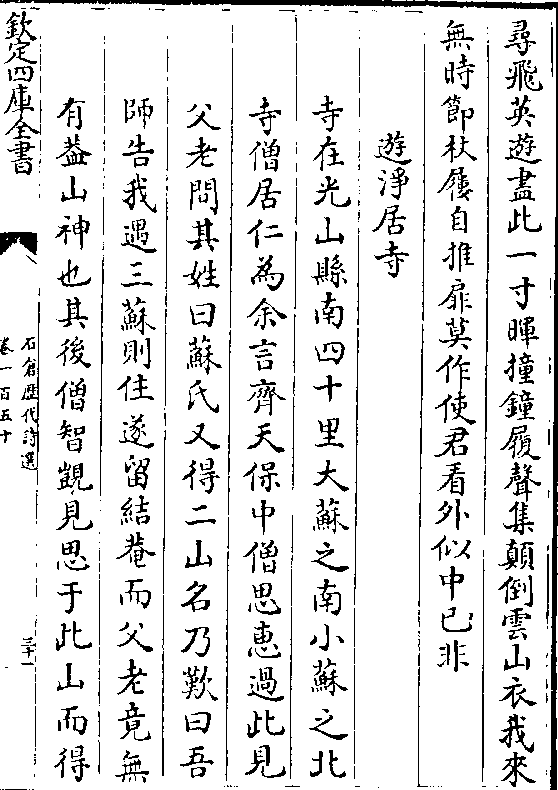 尋飛英遊盡此一寸暉撞鐘履聲集顛倒雲山衣我來
無時節杖屨自推扉莫作使君看外似中已非
遊淨居寺
寺在光山縣南四十里大蘇之南小蘇之北
寺僧居仁為余言齊天保中僧思惠過此見
父老問其姓曰蘇氏又得二山名乃歎曰吾
師告我遇三蘇則住遂留結菴而父老竟無
有葢山神也其後僧智覬見思于此山而得
欽定四庫全書
石倉歴代詩選
卷一百五十
三十一